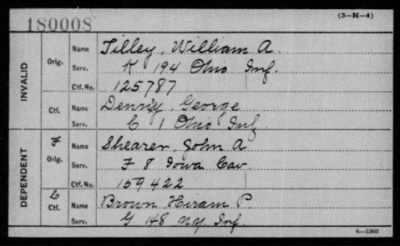 180008
(3-H-4)
INVALID
Orig.
Name Tilley, William A.
Serv. K 194 Ohio Inf.
Ctf. No. 125787
Ctf.
Name George
Serv. C 1 Ohio Inf
DEPENDENT
F
Orig.
Name Shearer, John A
Serv. F 8 Iowa Cav
Ctf. No. 159422
Ctf.
Name Brown Hiram P
Serv. G 148 NY Inf.